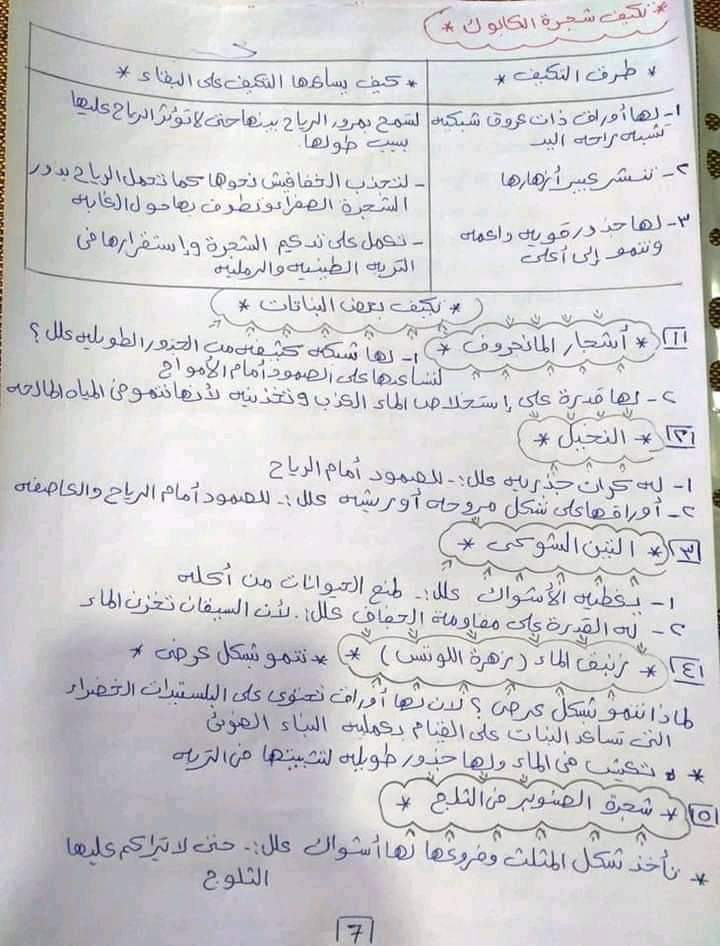 * تكيف شجرة الكابوك *
* طرق التكيف *
* كيف يساعدها التكيف على البقاء *
١- لها أوراق ذات عروق شبكيه
تشبه راحه اليد
لتسمح بمرور الرياح بينها حتى لا تؤثر الرياح عليها
بسبب طولها
٢- تنشر عبير أزهارها
- لتجذب الخفافيش نحوها كما تحمل الرياح بذور
الشجرة الصفراء وتطوف بها حول الغابه
٣- لها جذور قويه داعمه
وتنمو إلى أعلى
- تعمل على تدعيم الشجرة وإستقرارها فى
التربه الطينيه والرمليه
* تكيف بعض النباتات *
١ * أشجار المانجروف * ١- لها شبكه كثيفه من الجذور الطويله علل ؟
لتساعدها على الصمود أمام الأمواج
٢- لها قدرة على إستخلاص الماء العذب وتخذنيه لأنها تنمو فى المياه المالحه
٢ * النخيل *
١- له كرات جذريه علل :- للصمود أمام الرياح
٢- أوراقها على شكل مروحه أو ريشه علل :- للصمود أمام الرياح والعاصفه
٣ * التين الشوكى *
١- يغطيه الأشواك علل :- لمنع الحيوانات من أكله
٢- له القدرة على مقاومة الجفاف علل :. لأن السيقان تخزن الماء
٤ * زنبق الماء (زهرة اللوتس) * * تنمو بشكل عرضى *
لماذا تنمو بشكل عرضى ؟ لأن لها أوراق تحتوى على البلستيدات الخضراء
التى تساعد النبات على القيام بعمليه البناء الضوئى
* تعيش فى الماء ولها جذور طويله لتثبيتها فى التربه
٥ * شجرة الصنوبر فى الثلج *
* تأخذ شكل المثلث وفروعها لها أشواك علل :- حتى لا تتراكم عليها
الثلوج
7